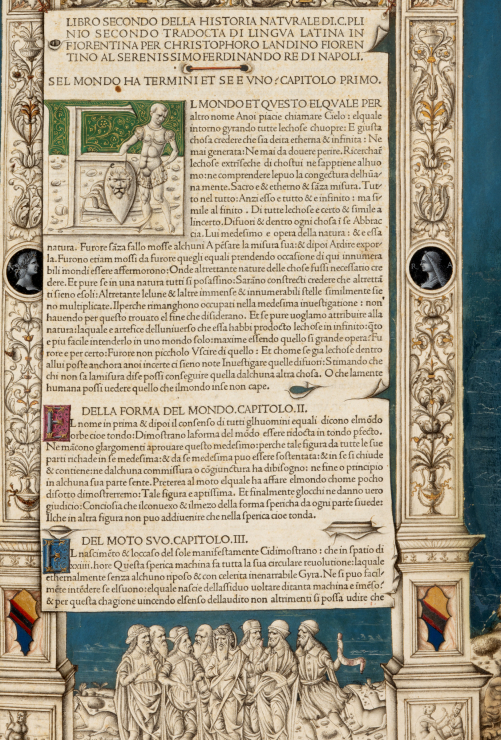 LIBRO SECONDO DELLA HISTORIA NATVRALE DI.C.PLI
NIO SECONDO TRADOCTA DI LINGVA LATINA IN
FIORENTINA PER CHRISTOPHORO LANDINO FIOREN
TINO AL SERENISSIMO FERDINANDO RE DI NAPOLI.
SEL MONDO HA TERMINI ET SE E VNO: CAPITOLO PRIMO.
EL MONDO ET QVESTO ELQVALE PER
altro nome Anoi piacie chiamare Cielo: elquale
intorno gyrando tutte lechose chuopre: E giusta
chosa credere che sia deita etherna & infinita: Ne
mai generata: Ne mai da douere perire. Ricerchar̄
lechose extrīseche di chostui ne sapptiene alhuo
mo: ne comprendere lepuo la congectura delhūa
na mente. Sacro e & etherno & sāza misura. Tut-
to nel tutto: Anzi esso e tutto & e infinito: ma si-
mile al finito. Di tutte lechose e certo & simile a
lincerto. Difuori & dentro ogni chosa ī se Abbrac
cia. Lui medesimo e opera della natura: & e essa
natura. Furore sāza fallo mosse alchuni A pēsare la misura sua: & dipoi Ardire expor
la. Furono etiam mossi da furore quegli equali prendendo occasione di qui innumera
bili mondi essere affermorono: Onde altrettante nature delle chose fussi necessario cre
dere. Et pure se in una natura tutti si possassino: Sarāno constrecti credere che altrettā
ti sieno esoli: Altretante lelune & laltre immense & innumerabili stelle similmente sie
no multiplicate. Ilperche rimanghono occupati nella medesima inuestigatione: non
hauendo per questo trouato el fine che disiderano. Et se pure uoglamo attribuire alla
natura: laquale e artefice delluniuerso che essa habbi prodocto lechose in infinito: q̄to
e piu facile intenderlo in uno mondo solo: maxime essendo quello si grande opera? Fu
rore e per certo: Furore non piccholo Vscire di quello: Et chome se gia lechose dentro
allui poste anchora anoi incerte ci sieno note Inuestigare quelle difuori: Stimando che
chi non sa lamisura dise possi conseguire quella dalchuna altra chosa. O che lamente
humana possi uedere quello che ilmondo inse non cape.
DELLA FORMA DEL MONDO. CAPITOLO. II.
EL nome in prima & dipoi il consenso di tutti glhuomini equali dicono elmōdo
orbe cioe tondo: Dimostrano laforma del mōdo essere ridocta in tondo pfecto.
Ne mācono glargomenti aprouare questo medesimo: perche tale figura da tutte le sue
parti richade in se medesima: & da se medesima puo essere sostentata: & in se si chiude
& contiene: ne dalchuna commissura o cōgiunctura ha dibisogno: ne fine o principio
in alchuna sua parte sente. Preterea al moto elquale ha affare elmondo chome pocho
disotto dimosterremo: Tale figura e aptissima. Et finalmente glocchi ne danno uero
giudicio: Conciosia che ilconuexo & ilmezo della forma spericha da ogni parte siuede:
Ilche in altra figura non puo addiuenire che nella sperica cioe tonda.
DEL MOTO SVO. CAPITOLO. III.
EL nascimēto & loccaso del sole manifestamente Cidimostrano: che in spatio di
xxiiii. hore Questa sperica machina fa tutta la sua circulare reuolutione: laquale
ethernalmente senza alchuno riposo & con celerita inenarrabile Gyra. Ne si puo facil-
mēte intēdere se elsuono: elquale nascie dellassiduo uoltare ditanta machina e imēso:
& per questa chagione uincendo elsenso dellaudito non altrimenti si possa udire che